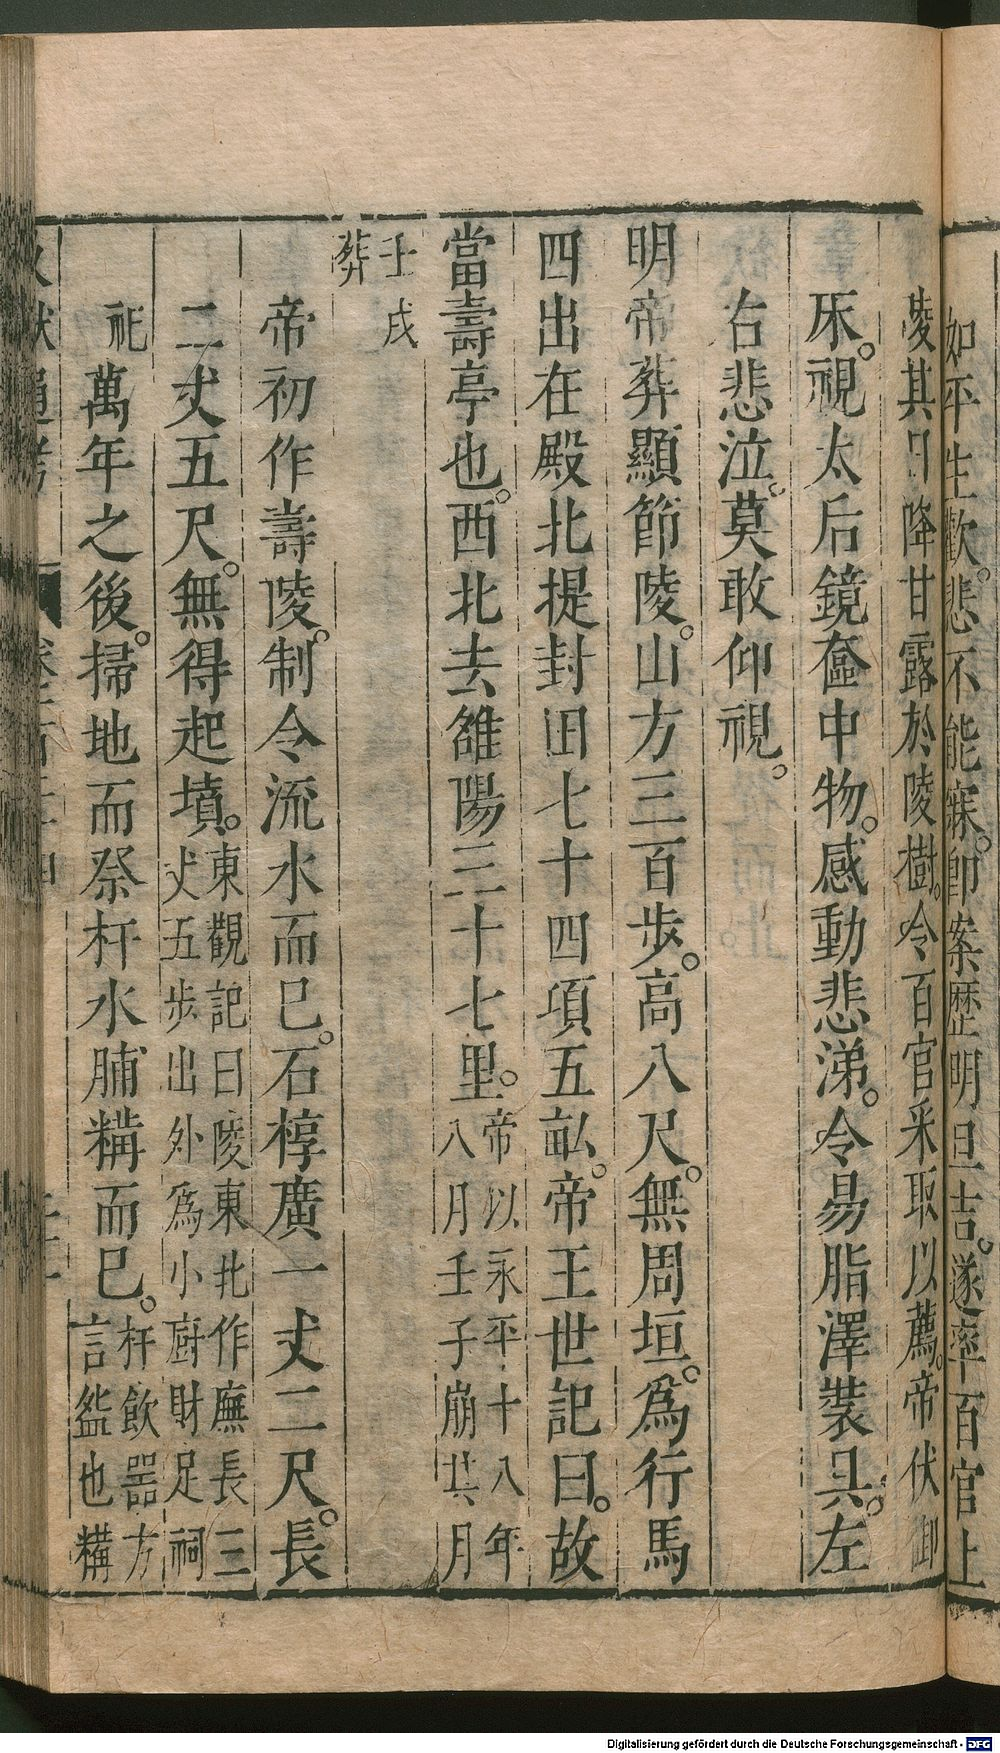 如平生歡。悲不能寐。卽案歷明旦吉。遂率百官上
陵其日降甘露於陵樹。令百官采取以薦。帝伏御
牀。視太后鏡奩中物。感動悲涕。令易脂澤裝具。左
右悲泣。莫敢仰視。
明帝葬顯節陵。山方三百步。高八尺。無周垣。爲行馬
四出在殿北提封田七十四項五畝。帝王世記曰。故
當壽亭也。西北去雒陽三十七里。帝以永平十八年
八月壬子崩其月
壬戌
葬
帝初作壽陵。制令流水而已。石椁廣一丈二尺。長
二丈五尺。無得起墳。東觀記曰陵東北作廡長三
丈五步出外爲小廚財足祠
祀萬年之後。掃地而祭杅水脯糒而已。杅飲器方
言盌也糒
文獻通考